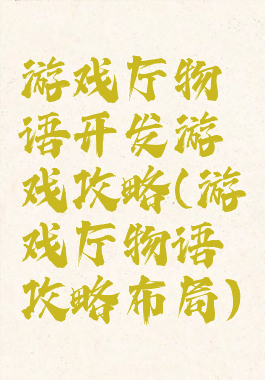 游戏厅物
语开发游
戏攻略(游
戏厅物语
攻略布局)